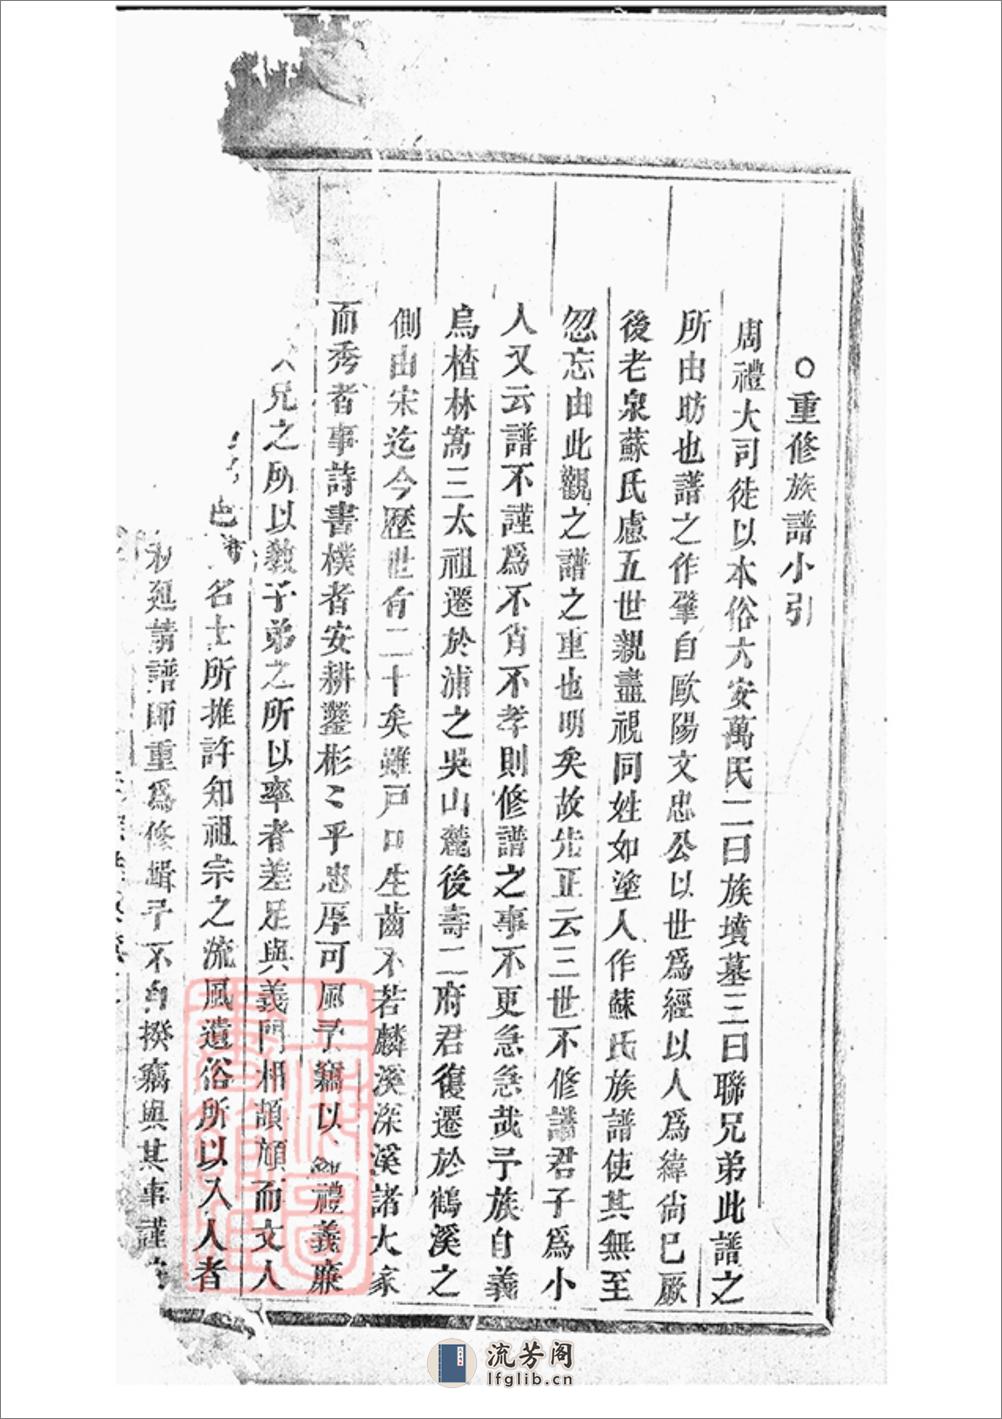 ○重修族譜小引
周禮大司徒以本俗六安萬民二曰族墳墓三曰聯兄弟此譜之
所由昉也譜之作肇自歐陽文忠公以世爲經以人爲緯尙已厥
後老泉蘇氏慮五世親盡視同姓如塗人作蘇氏族譜使其無至
忽忘由此觀之譜之重也明矣故先正云三世不修譜君子爲小
人又云譜不謹爲不肖不孝則修譜之事不更急急哉予族自義
烏楂林嵩三太祖遷於浦之吳山麓後壽二府君復遷於鶴溪之
側由宋迄今歷世有二十矣雖戶口生齒不若麟溪深溪諸大家
而秀者事詩書樸者安耕鑿彬〻乎忠厚可風予竊以 禮義廉
父兄之所以敎子弟之所以率者差足與義門相頡頏而文人
名士所推許知祖宗之流風遺俗所以入人者
秋延請譜師重爲修輯予不自揆竊與其事謹
流芳阁
lfglib.cn